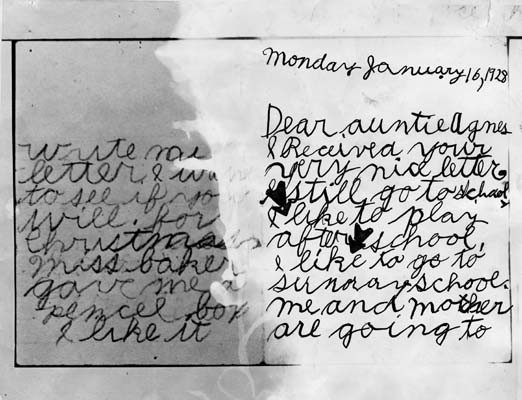 Monday January 16, 1928
Dear auntie Agnes
I Received your
very nic letter,
I still go to school,
I like to play
after school,
I like to go to
sunday school.
me and mother
are going to
write
letter I
to see if you
will. for
christmas
miss baker
gave me a
pencel box
I like it